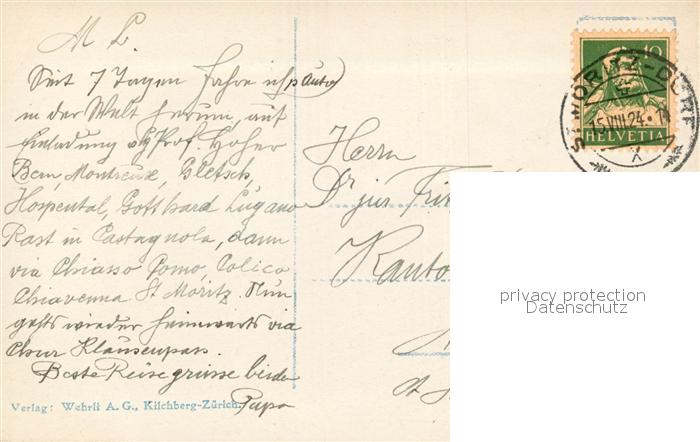 M L.
Seit 7 Tagen fahre ich p. Auto
in der Welt herum, auf
Einladung Prof. Hoher
Bern, Montreux, Gletsch,
Hospental, Gotthard Lugano
Rast in Castagnola, dann
via Chiasso Como, Colico
Chiavenna St Moritz. Nun
gehts wieder heimwärts via
Chur Klausenpass.
Beste Reisegrüsse beide
Papa
Verlag: Wehrli A. G., Kilchberg-Zürich.
10
HELVETIA
ST. MORITZ-DORF
15.VIII.24.
Herrn
Dr jur
Kanto
St
privacy protection
Datenschutz